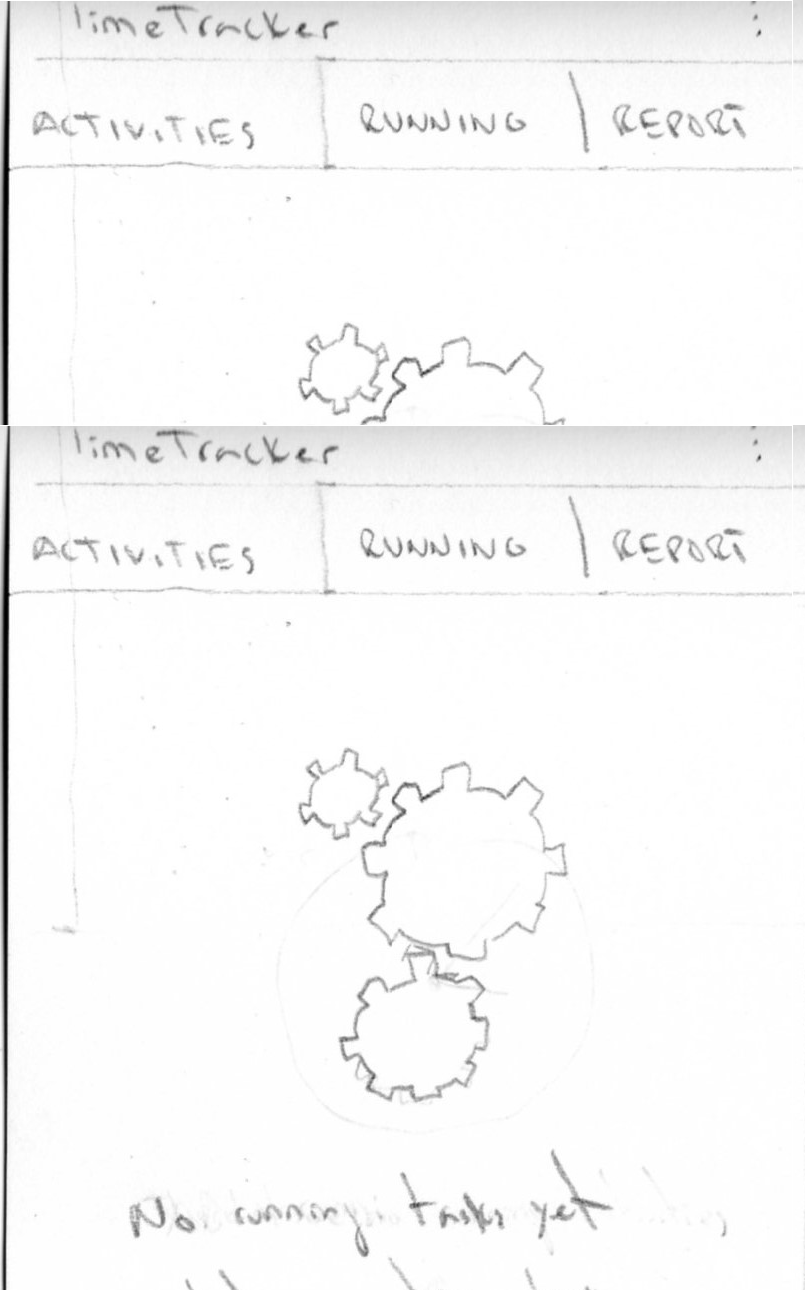 TimeTracker
ACTIVITIES RUNNING REPORT
TimeTracker
ACTIVITIES RUNNING REPORT
No running tasks yet